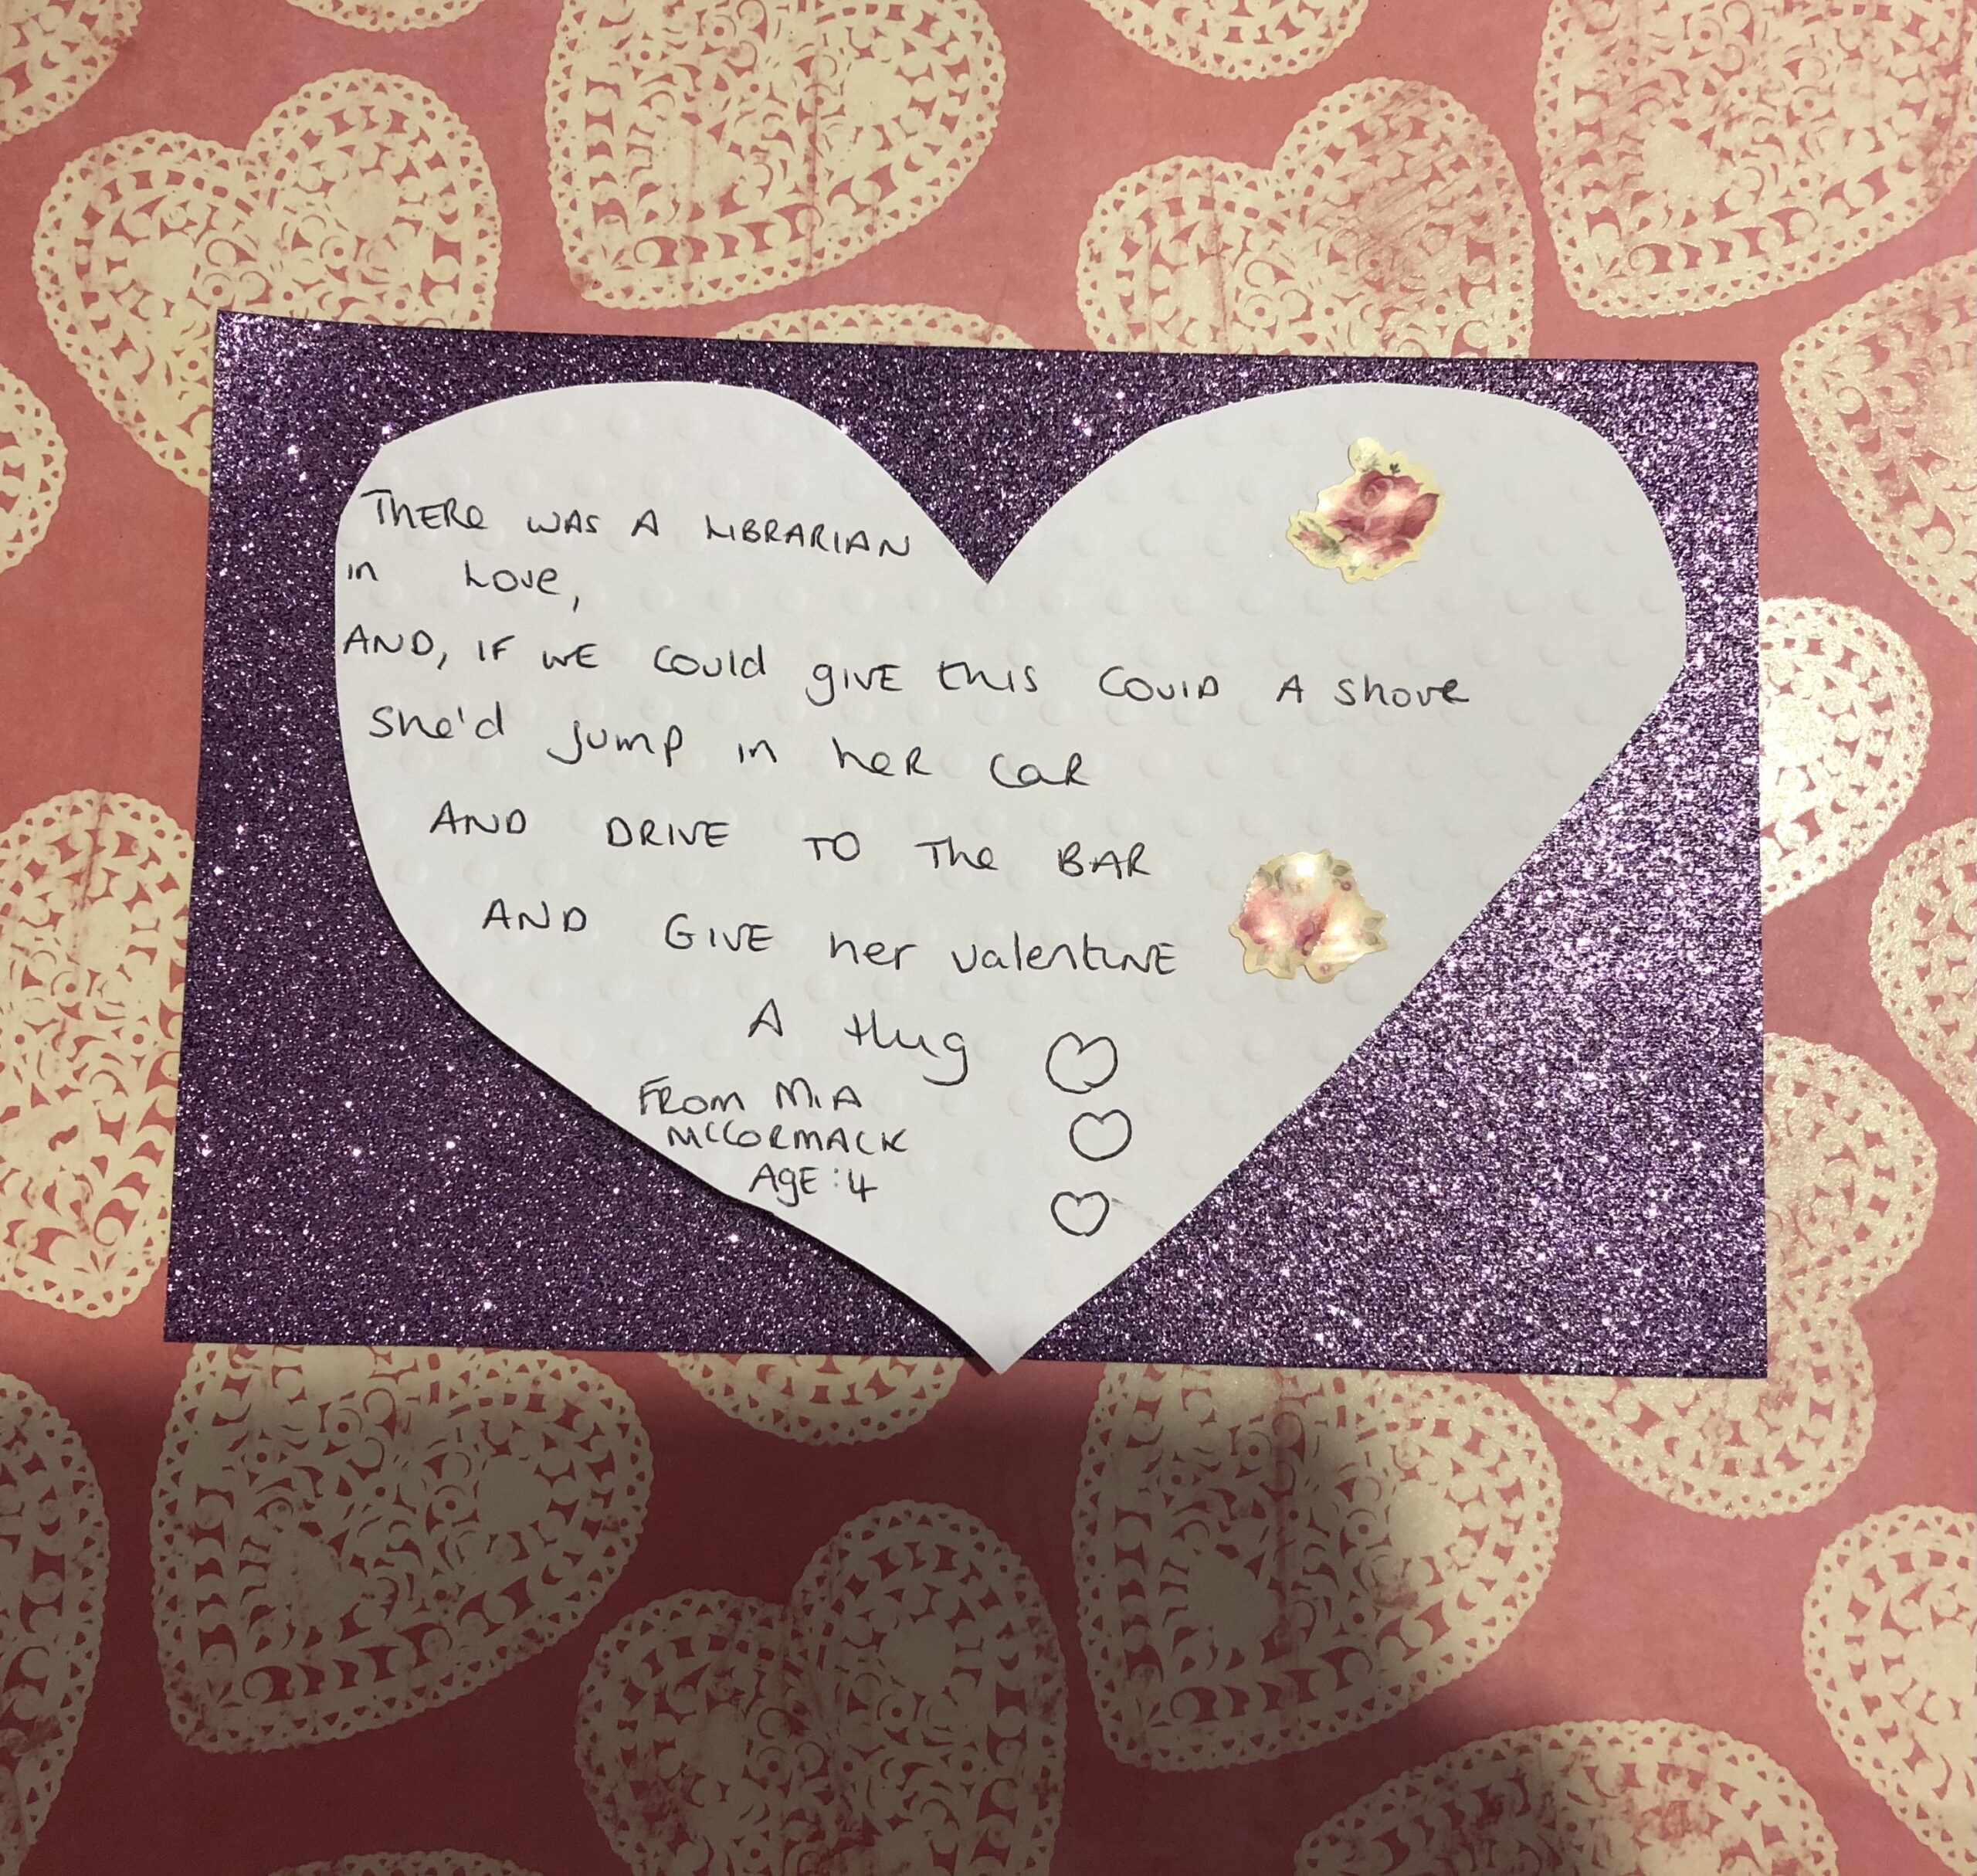 THERe WAS A LIBRARIAN
in Love,
AND, IF WE could gIVE this COVID A shove
She'd jump in heR caR
AND DRIVE TO The BAR
AND GIVE her valentINE
A Hug
FRom MiA
MCCORMACK
AgE : 4